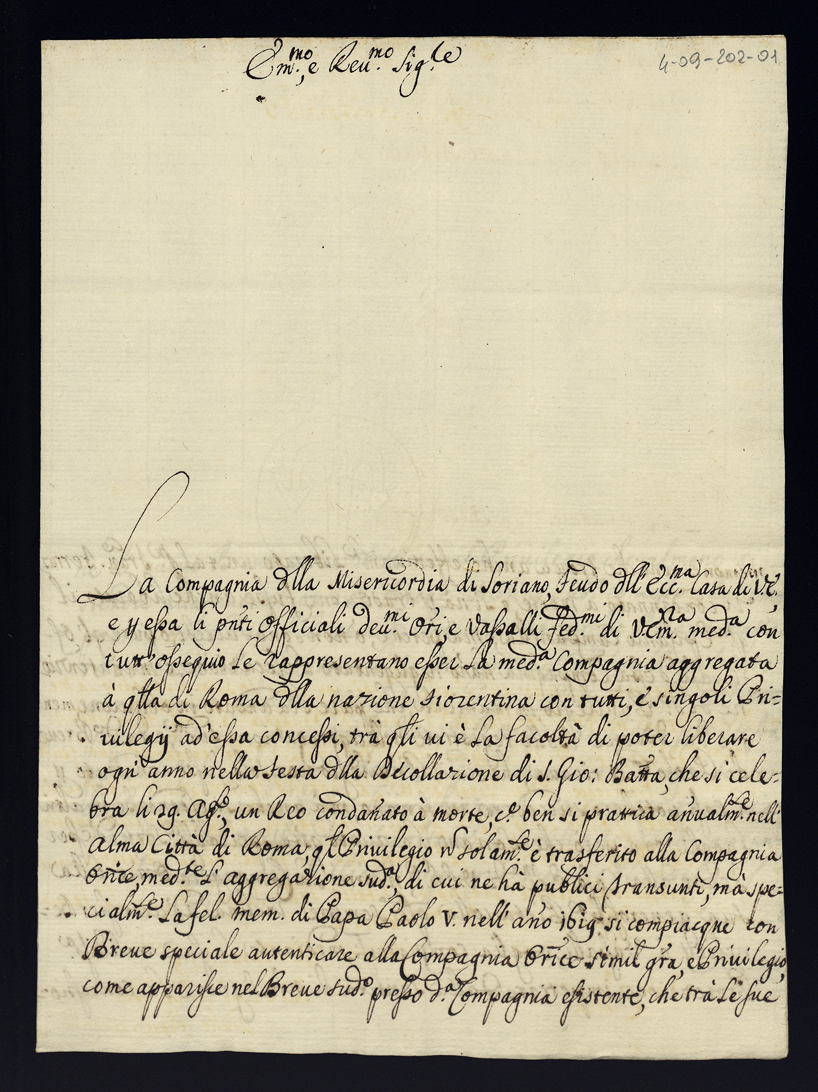 Em.mo, e Reu.mo Sig.le
4-09-202-01
La Compagnia dlla Misericordia di Soriano, Feudo dll'Ecc.ma Casa di V.E.
e p essa li pnti Officiali deu.mi Ori, e Vassalli Fed.mi di V.Em.za med.a con
tutt'ossequio Le rappresentano esser La med.a Compagnia aggregata
à qlla di Roma dlla nazione fiorentina con tutti, e singoli Pri=
uilegij ad'essa concessi, trà qli ui è La facoltà di poter liberare
ogn'anno nella festa dlla Decollazione di S. Gio: Batta, che si cele=
bra li 29. Ag.o, un Reo condañato à morte, c.e ben si prattica anualm.e nell'
Alma Città di Roma, ql Privilegio ñ solam.e è trasferito alla Compagnia
Orice, med.te L'aggregazione sud.a, di cui ne hà publici Transunti, mà spe=
cialm.e La fel. mem. di Papa Paolo V. nell'año 1619 si compiacque con
Breue speciale autenticare alla Compagnia Orice simil gra, e Privilegio,
come apparisce nel Breue sud.o presso d.a Compagnia esistente, che trà Le sue